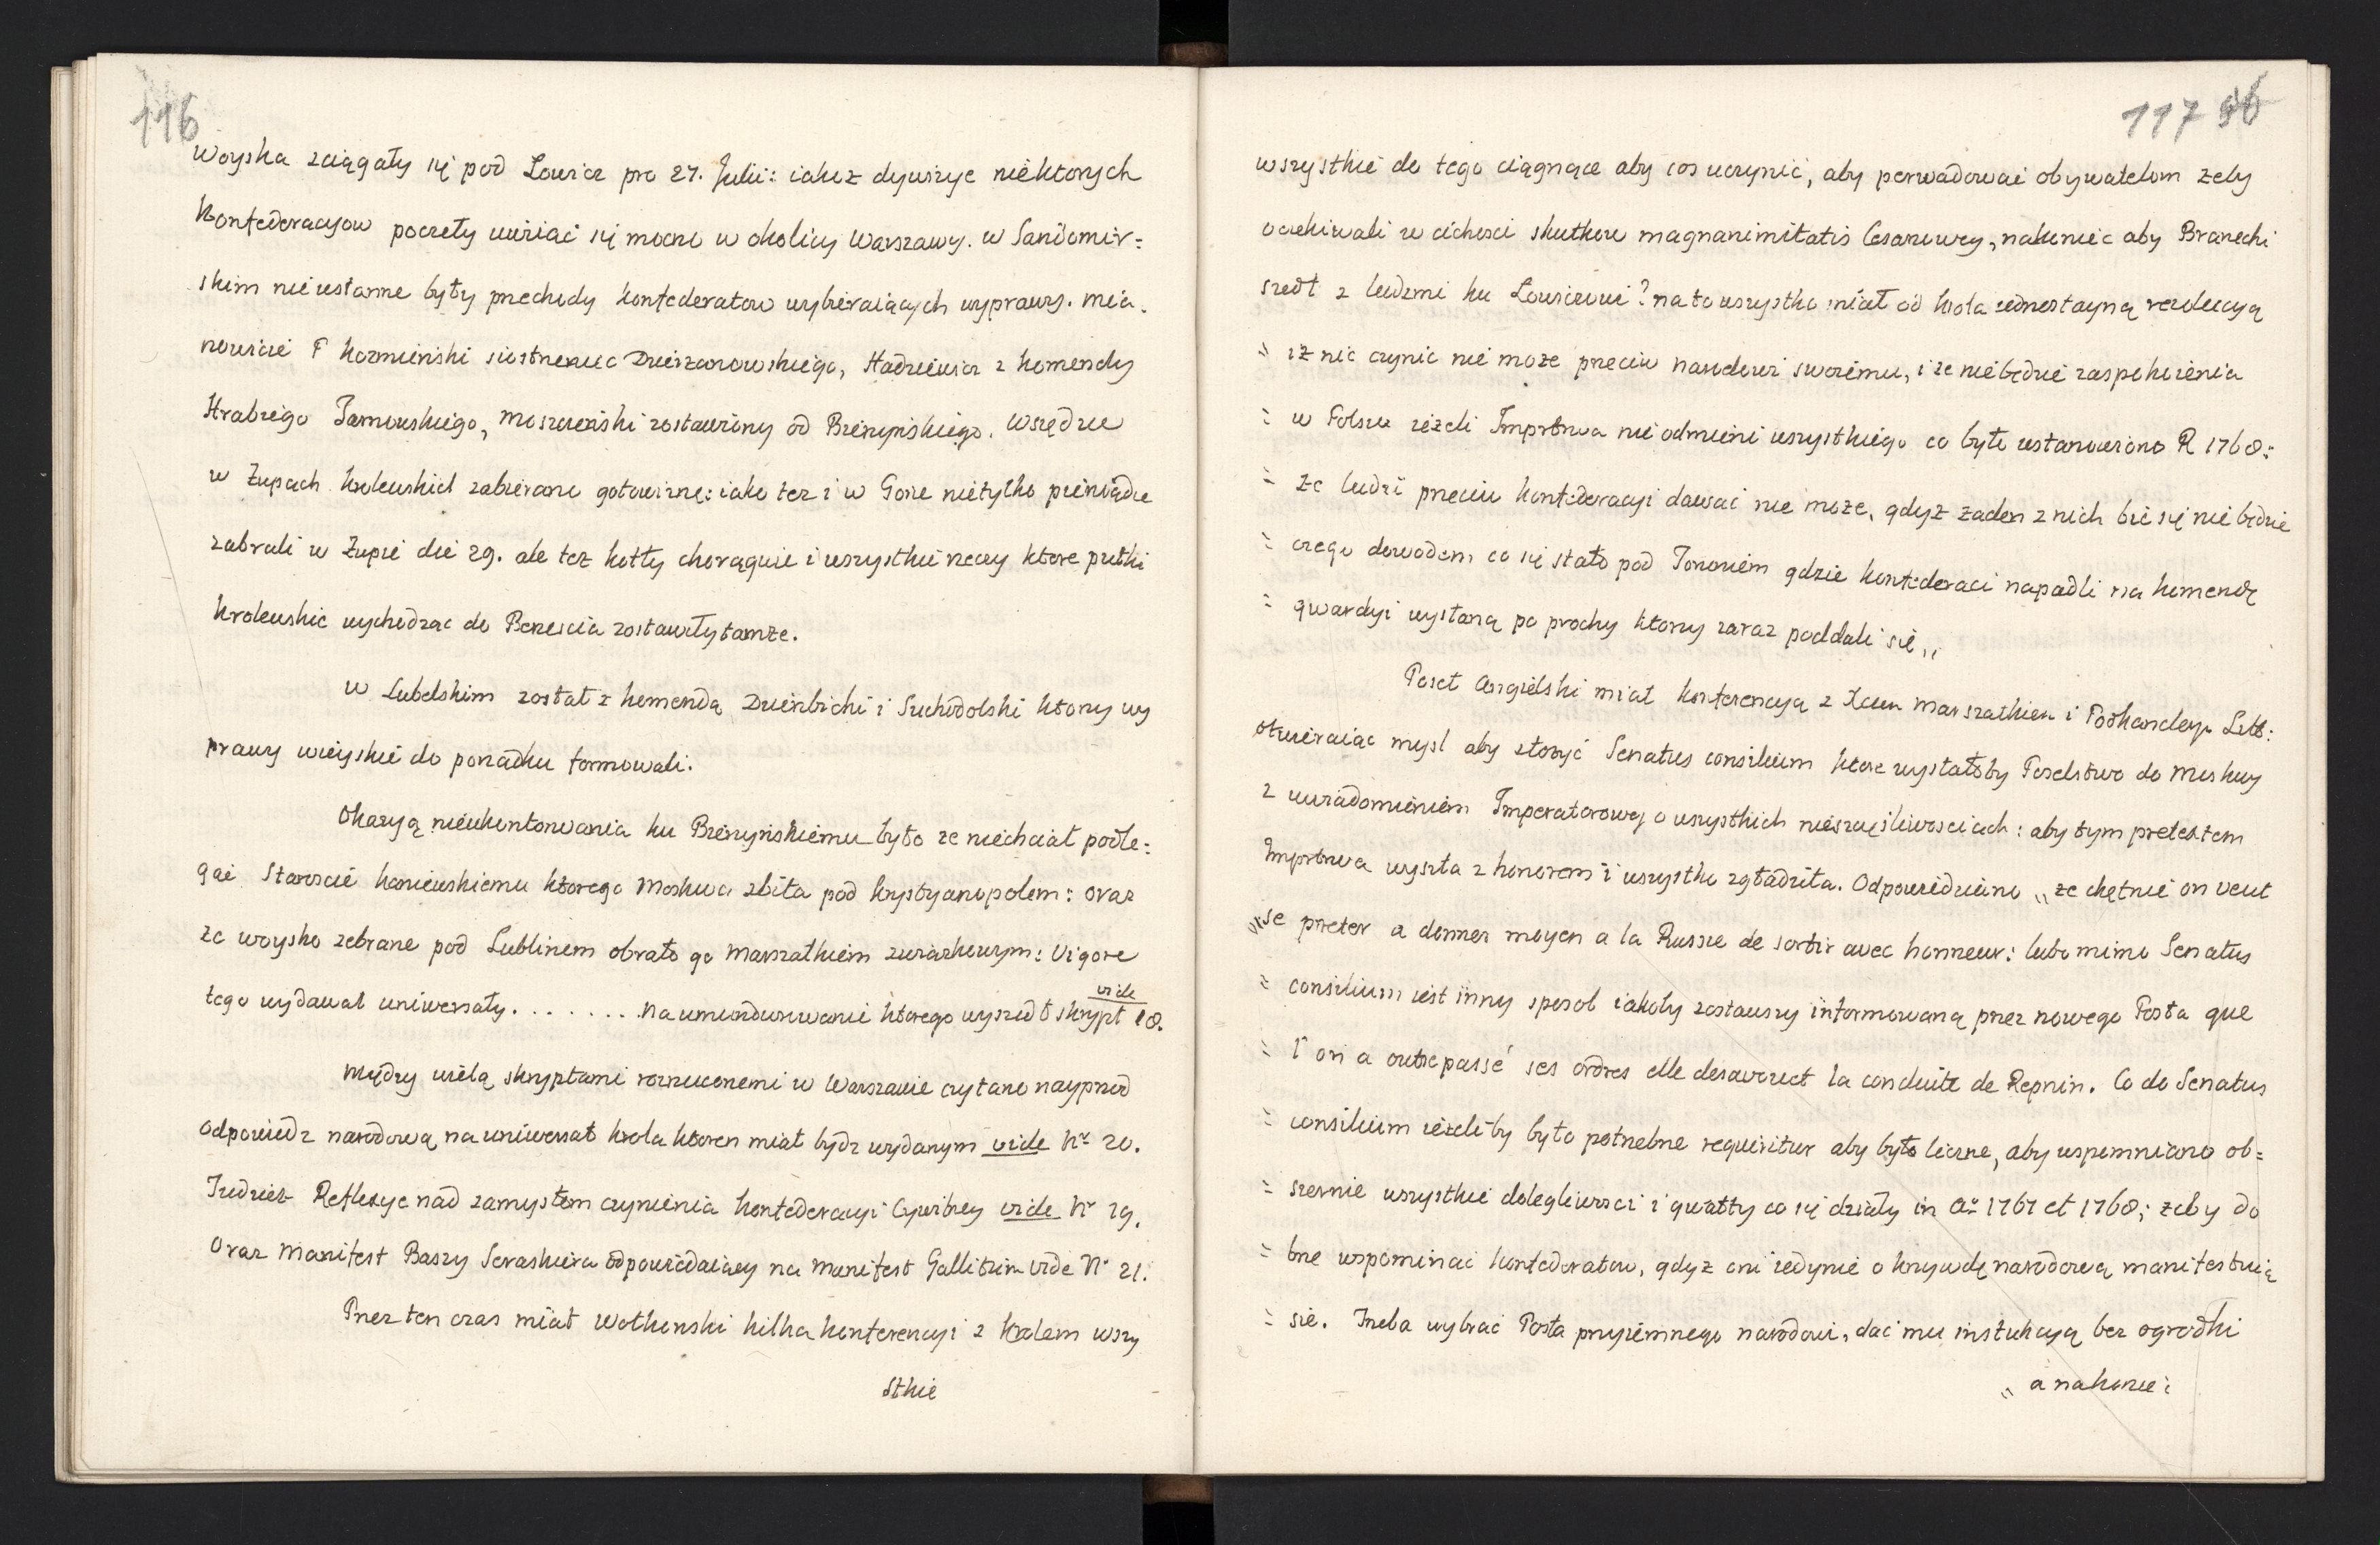 116
Woyska zciągały się pod Lowicz pro 27. Julii: iakoż dywizye niektorych
Konfederacyow poczeły uwiiać się mocno w okolicy Warszawy. w Sandomir=
skim nieustanne były przechody konfederatow wybieraiących wyprawy. mia.
nowicie P Kozminski siostrzeniec Dzierzanowskiego, Hadziewicz z komendy
Hrabiego Tarnowskiego, Moszczeński zostawiony od Bierzyńskiego. Wszędzie
w Żupach krolewskich zabierano gotowiznę: iako tez i w Gorze nietylko pieniądze
zabrali w Żupie die 29. ale tez kotły chorągwie i wszystkie rzeczy ktore pułki
krolewskie wychodząc do Brzescia zostawiły tamże.
w Lubelskim został z komendą Dzierzbicki i Suchodolski ktorzy wy
prawy wieyskie do porządku formowali.
Okazyą nieukontowania ku Bierzyńskiemu było ze niechciał podle=
gać Staroscie kaniewskiemu ktorego Moskwa zbiła pod Krystyanopolem: oraz
ze woysko zebrane pod Lublinem obrało go Marszałkiem związkowym: Vigore
tego wydawał uniwersały. . . . . . . . na umundurowanie ktorego wyszedł skrypt vide 18.
Między wielą skryptami rozrzuconemi w Warszawie czytano nayprzod
Odpowiedz narodową na uniwersał krola ktoren miał bydz wydanym vide Nr 20.
Tudziesz Reflexye nad zamysłem czynienia konfederacyi Cywilney vide Nr 19.
Oraz Manifest Baszy Seraskiera odpowiadaiący na Manifest Gallitzina vide Nr 21.
Przez ten czas miał Wołkonski kilka konferencyi z Krolem wszy
stkie
117 86
wszystkie do tego ciągnące aby cos uczynić, aby perswadować obywatelom zeby
oczekiwali w cichosci skutkow magnanimitatis Cesarzowey, nakoniec aby Branecki
szedł z ludzmi ku Lowiczowi? na to wszystko miał od krola iednostayną rezolucyą
„ iż nic czynic nie może przeciw narodowi swoiemu, i ze niebędzie zaspokoienia
= w Polszcze ieżeli Imprtrwa nie odmieni wszystkiego co było ustanowiono R 1768:
= że ludzi przeciw konfederacyi dawać nie może, gdyż żaden z nich bić się nie będzie
= czego dowodem co się stało pod Toruniem gdzie konfederaci napadli na komendę
= gwardyi wysłaną po prochy ktorzy zaraz poddali się „
Poseł Angielski miał konferencyą z Xciem Marszałkiem i Podkanclerzym Litt:
otwieraiąc mysl aby złożyć Senatus consilium ktore wysłałoby Poselstwo do Moskwy
z uwiadomieniem Imperatorowey o wszystkich nieszczęśliwosciach: aby tym pretextem
Imprtrwa wyszła z honorem i wszystko zgładziła. Odpowiedziano „ ze chętnie on veut
„ se preter a donner moyen a la Russie de sortir avec honneur: lubo mimo Senatus
= consilium iest inny sposob iakoby zostawszy informowaną przez nowego Posła que
= l'on a outrepassé ses ordres elle desavouet la conduite de Repnin. Co do Senatus
= consilium ieżeliby było potrzebne requiritur aby było liczne, aby wspomniano ob=
= szernie wszystkie dolegliwosci i gwałty co się działy in Ao 1767 et 1768; zeby do
= bne wspominać konfederatow, gdyz oni iedynie o krzywdę narodową manifestuią
= sie. Trzeba wybrać Posła przyiemnego narodowi, dać mu instukcyą bez ogrodki
„ a nakoniec